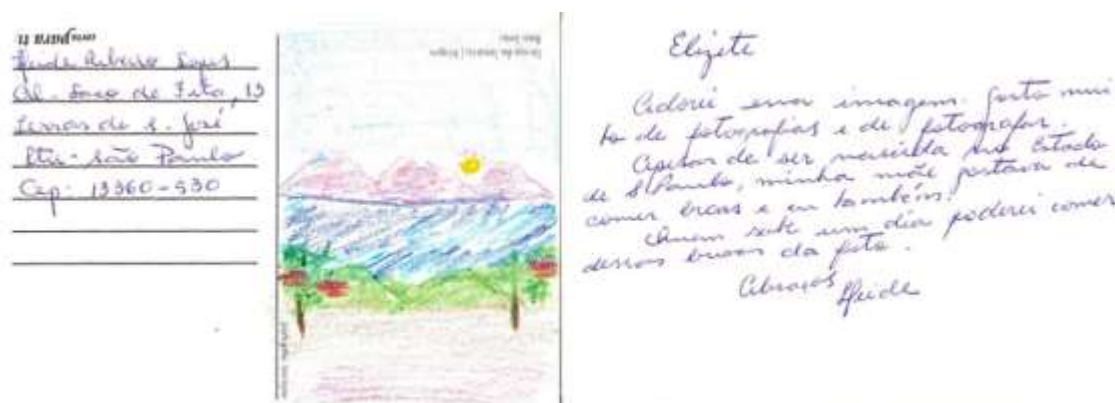 para ti
Neide Ribeiro Lopes
Al. Saco de Fita, 13
Terras de S. José
Itu - São Paulo
Cep: 13360-930
Elizete
Adorei essa imagem. Gosto mui
to de fotografias e de fotografar.
Apesar de ser nascida no Estado
de S. Paulo, minha mãe gostava de
comer e eu também.
Quem sabe um dia poderei comer
dessas da foto.
Abraços
Neide